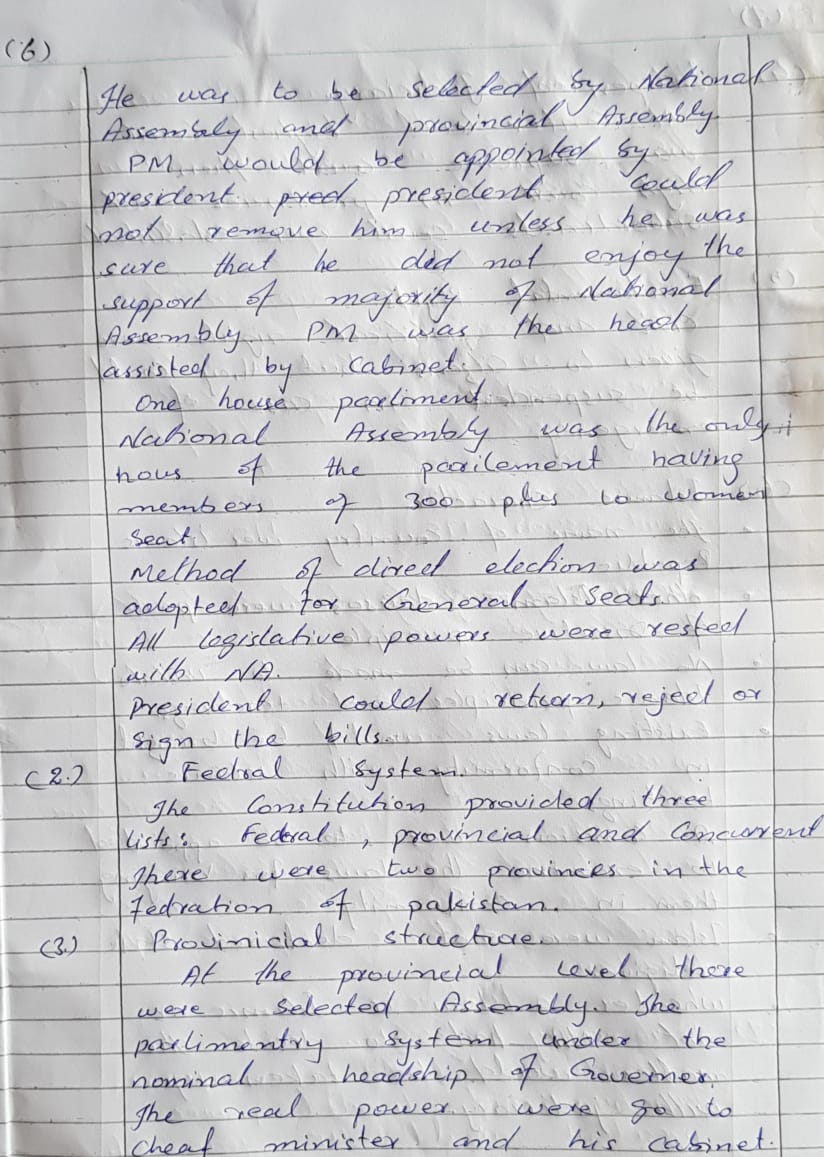 (6)
He was to be selected by National
Assembaly and provincial Assembly
PM would be appointed by
president pred president could
not remove him unless he was
sure that he did not enjoy the
support of majority of National
Assembly. PM was the head
assisted by Cabinet.
One house parliment.
National Assembly was the only
hous of the parilement having
members of 300 plus 10 women
Seat.
Method of direct election was
adopted for General Seats.
All legislative powers were rested
with NA.
President could return, reject or
sign the bills.
(2.) Fedral System.
The Constitution provided three
lists: Federal, provincial and Concurrent
There were two provinces in the
Fedration of pakistan.
(3.) Provinicial structure.
At the provincial level there
were selected Assembly. The
parlimentry system under the
nominal headship of Governer.
The real power were go to
Cheaf minister and his cabinet.